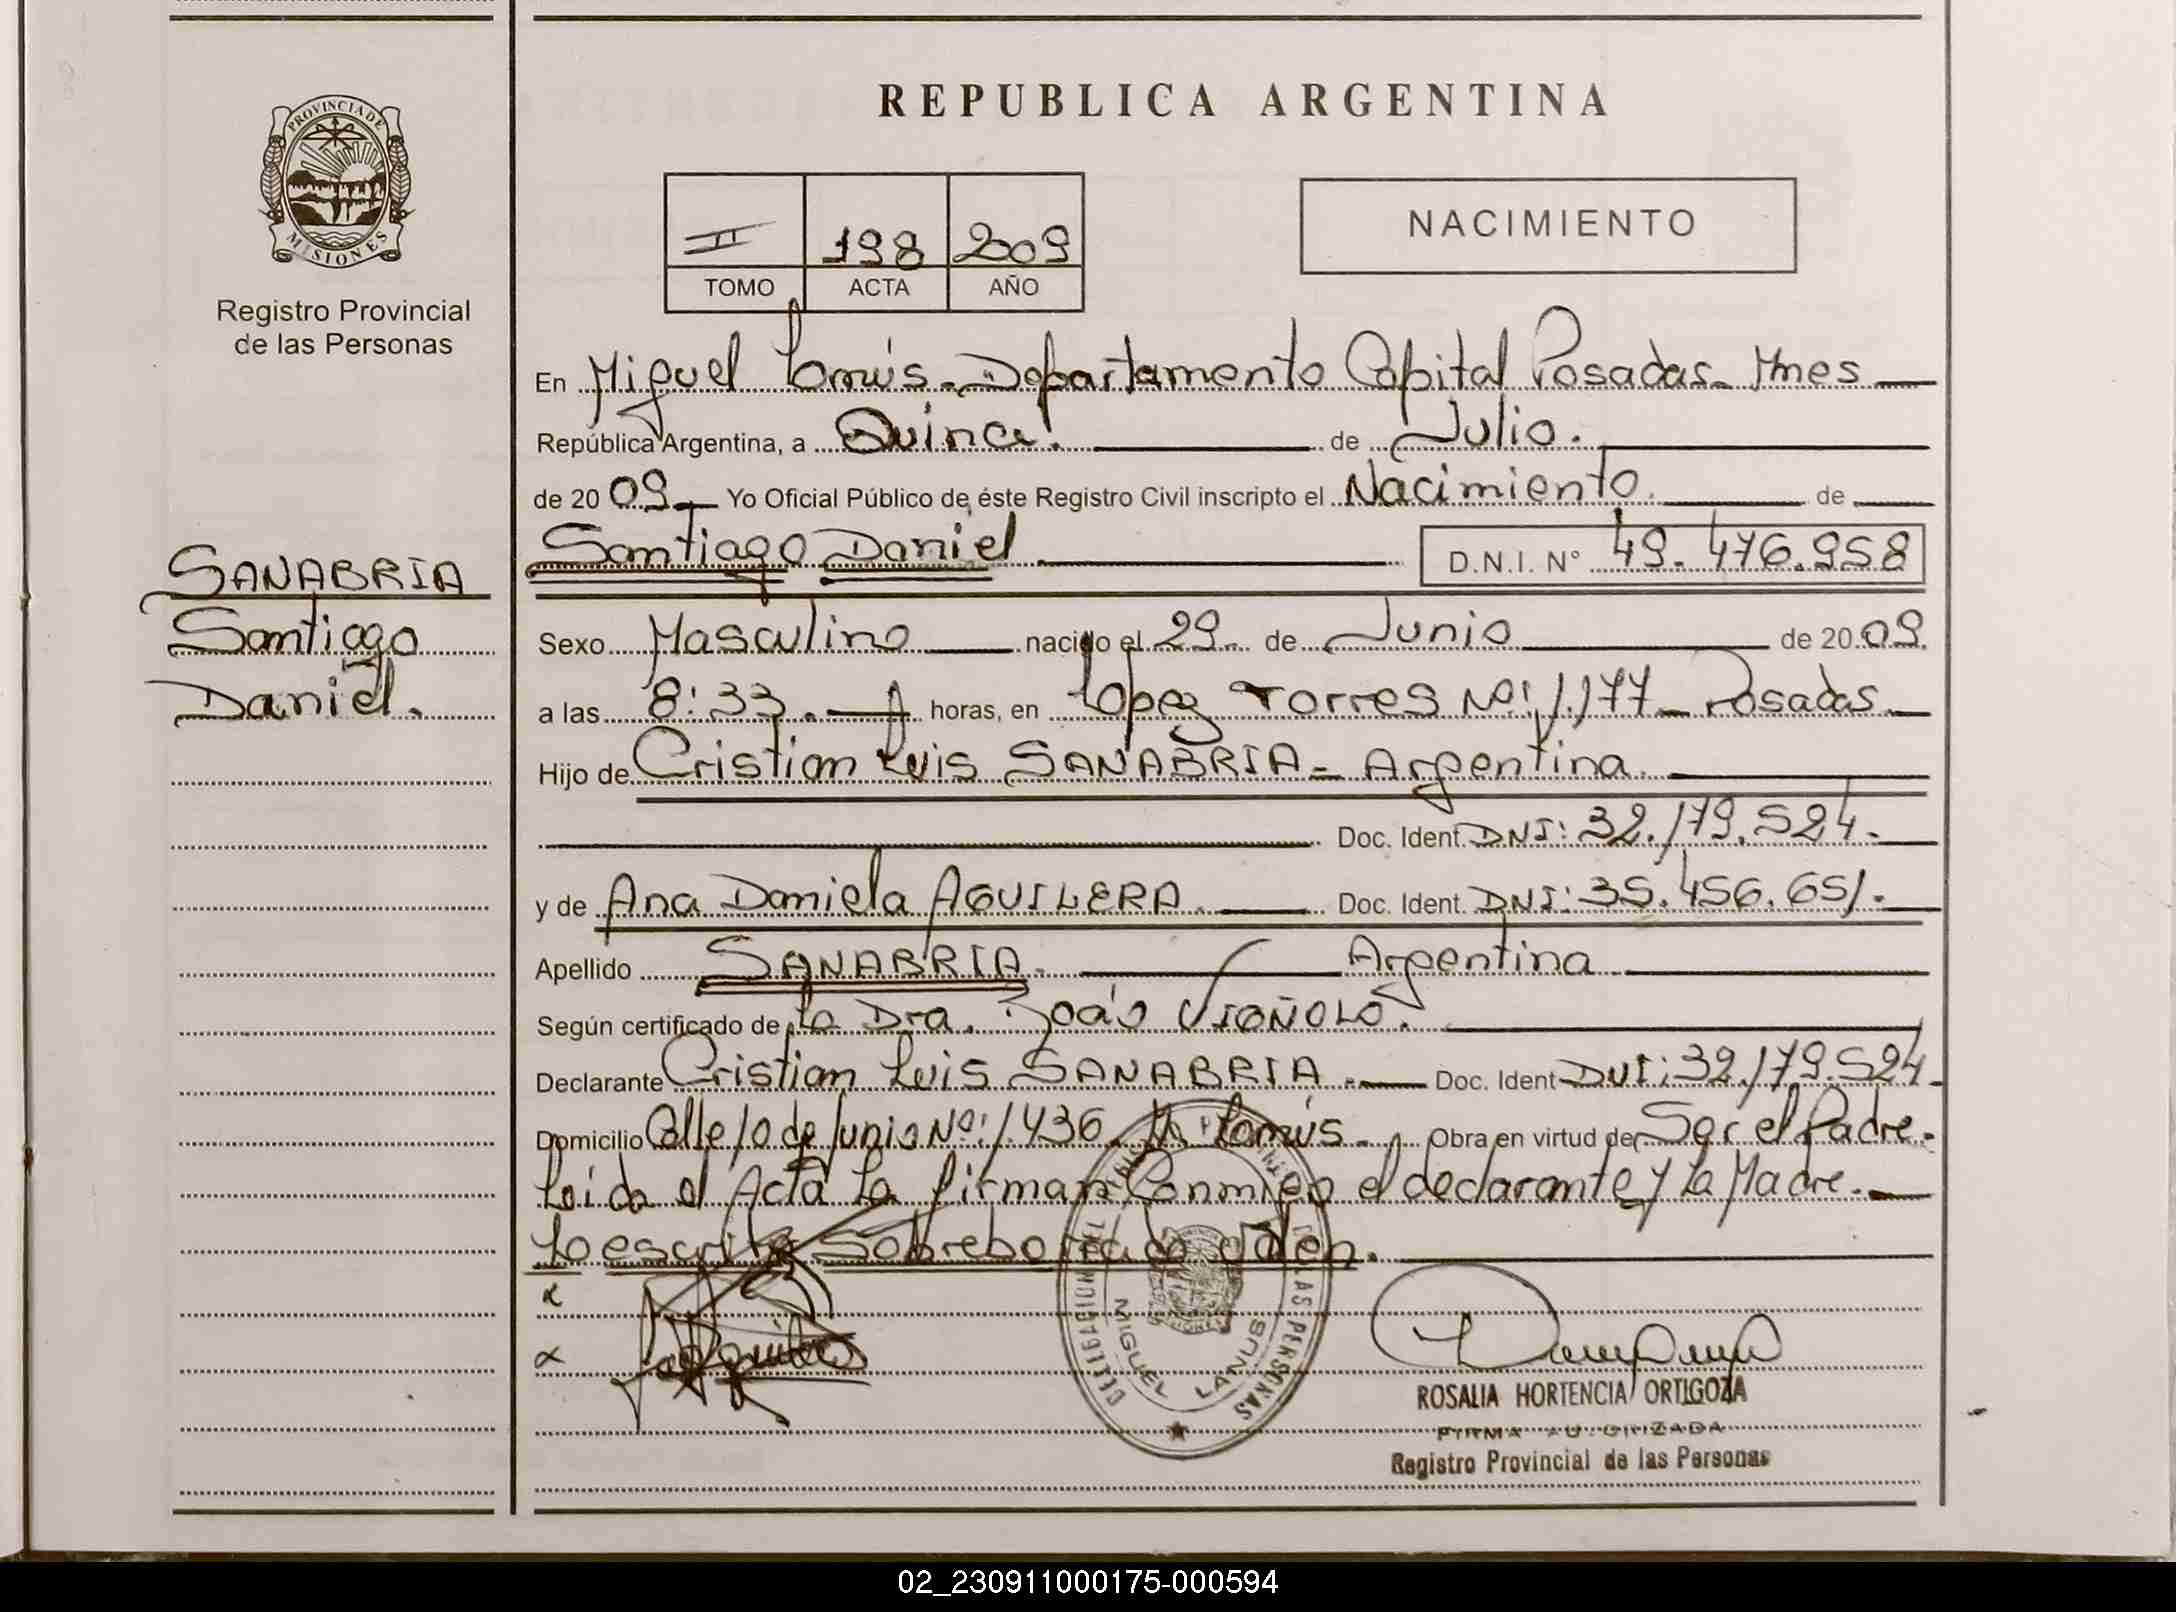 REPUBLICA ARGENTINA
PROVINCIA DE MISIONES
Registro Provincial
de las Personas
II 198 2009
TOMO ACTA AÑO
NACIMIENTO
En Miguel Lanús - Departamento Capital Posadas - Mnes
República Argentina, a Quince. de Julio.
de 2009 Yo Oficial Público de éste Registro Civil inscripto el Nacimiento. de
Santiago Daniel
D.N.I. N° 49.476.958
SANABRIA
Santiago
Daniel.
Sexo Masculino nacido el 29 de Junio de 2009.
a las 8:33. horas, en López Torres Nº: 1.177 - Posadas
Hijo de Cristian Luis SANABRIA - Argentina.
Doc. Ident. DNI: 32.179.524.
y de Ana Daniela AGUILERA. Doc. Ident. DNI: 35.456.651.
Apellido SANABRIA. Argentina
Según certificado de La Dra. VIGÑOLO.
Declarante Cristian Luis SANABRIA. Doc. Ident DNI: 32.179.524.
Domicilio Calle 10 de Junio Nº: 1.436. M. Lanús. Obra en virtud de Ser el Padre.
Leída el Acta La firman Conmigo el declarante y La Madre.
Lo escrito Sobreborrado Valen.
DELEGACION DE LAS PERSONAS
MIGUEL LANUS
ROSALIA HORTENCIA ORTIGOZA
FIRMA AUTORIZADA
Registro Provincial de las Personas
02_230911000175-000594